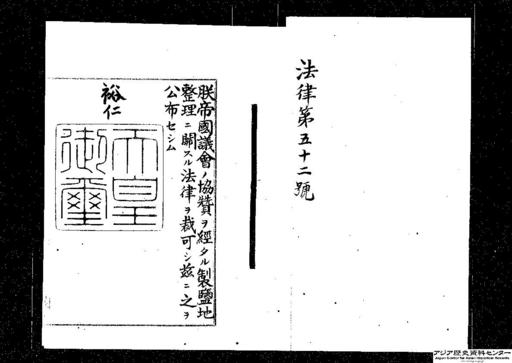 法律第五十二號
朕帝國議會ノ協贊ヲ經タル製鹽地
整理ニ關スル法律ヲ裁可シ茲ニ之ヲ
公布セシム
裕仁
天皇
御璽
アジア歴史資料センター
Japan Center for Asian Historical Records